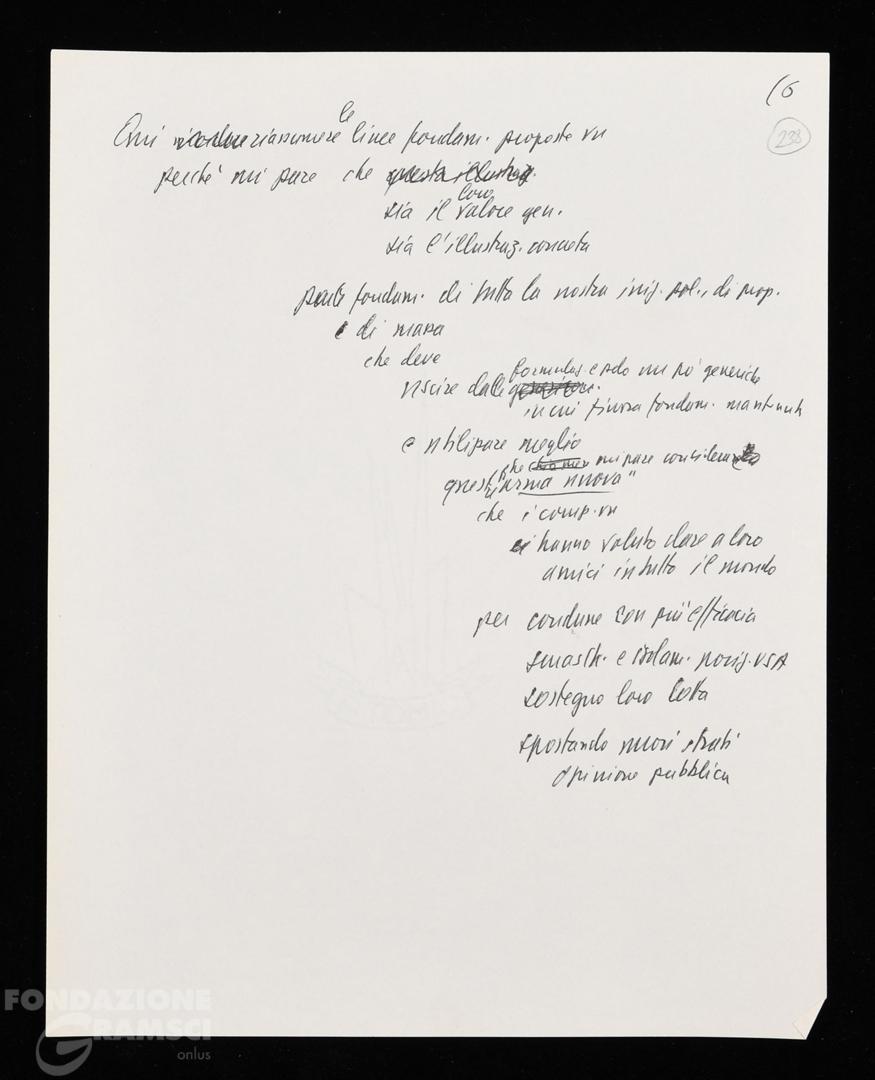 16
238
Qui riassumere le linee fondam. proposte vn
perché mi pare che questa illustraz.
sia il loro valore gen.
sia l'illustraz. concreta
parte fondam. di tutta la nostra iniz. pol., di prop.
e di massa
che deve
uscire dalle formulaz. e solo un po' generiche
in cui finora fondam. mantenuta
e utilizzare meglio
che mi pare considerare
quest' "arma nuova"
che i comp. vn
ci hanno voluto dare a loro
amici in tutto il mondo
per condurre con più efficacia
smasch. e isolam. posiz. USA
sostegno loro lotta
spostando nuovi strati
opinione pubblica
FONDAZIONE
GRAMSCI
onlus